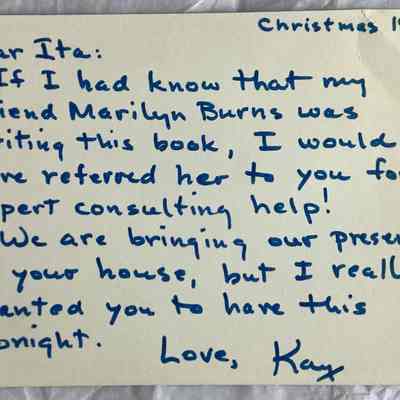 Christmas 19
ar Ita:
If I had know that my
iend Marilyn Burns was
riting this book, I would
ve referred her to you for
pert consulting help!
We are bringing our presen
your house, but I reall
anted you to have this
onight.
Love, Kay